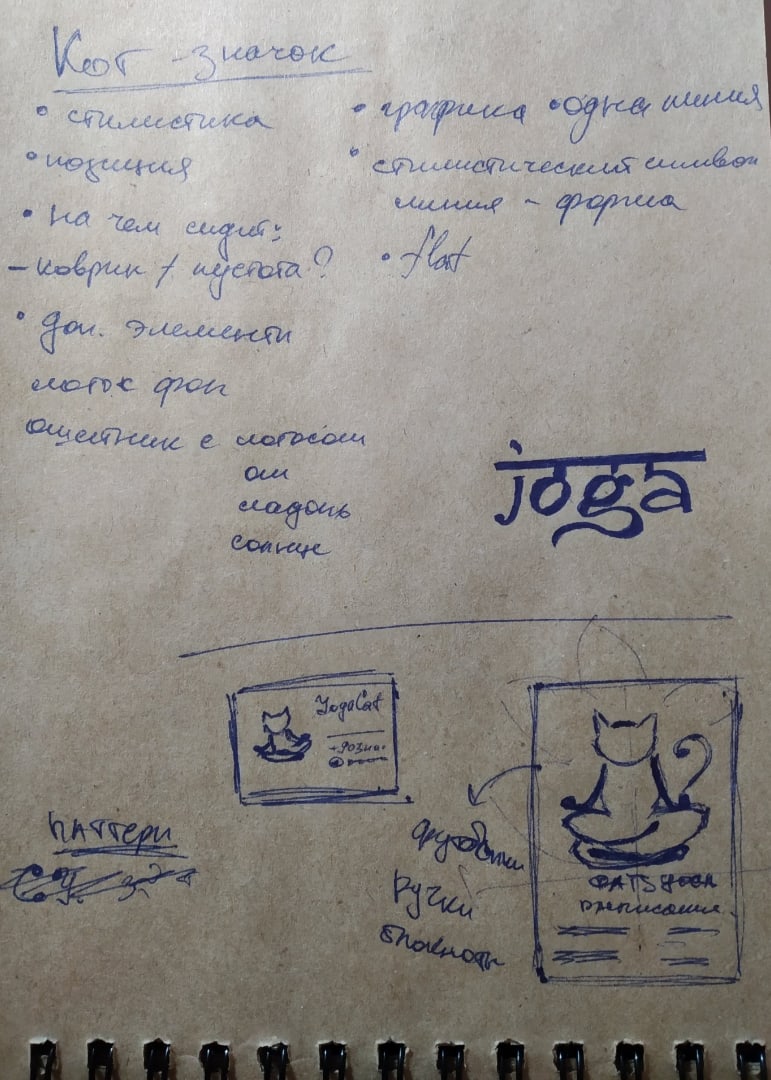 Кот - значок
• стилистика
• позиция
• на чем сидит:
– коврик / пустота?
• доп. элементы
лоток фон
ошейник с лотосом
ом
ладонь
солнце
• графика • одна линия
• стилистический символ
линия - форма
• flat
joga
YogaCat
паттерн
футболки
ручки
блокноты
CATS YOGA
расписание